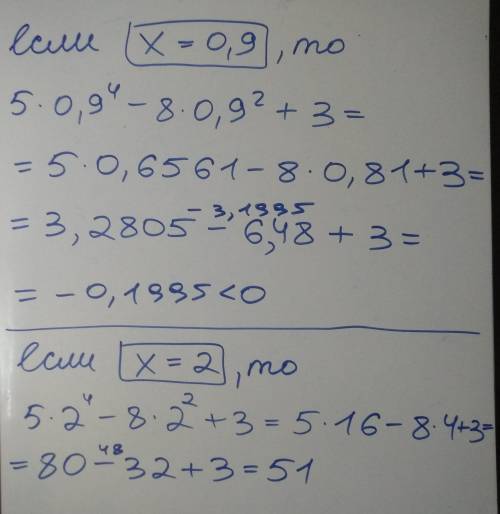 если x = 0,9, то
5·0,9⁴ − 8·0,9² + 3 =
= 5·0,6561 − 8·0,81 + 3 =
− 3,1995
= 3,2805 − 6,48 + 3 =
= − 0,1995 < 0
если x = 2, то
5·2⁴ − 8·2² + 3 = 5·16 − 8·4 + 3 =
48
= 80 − 32 + 3 = 51